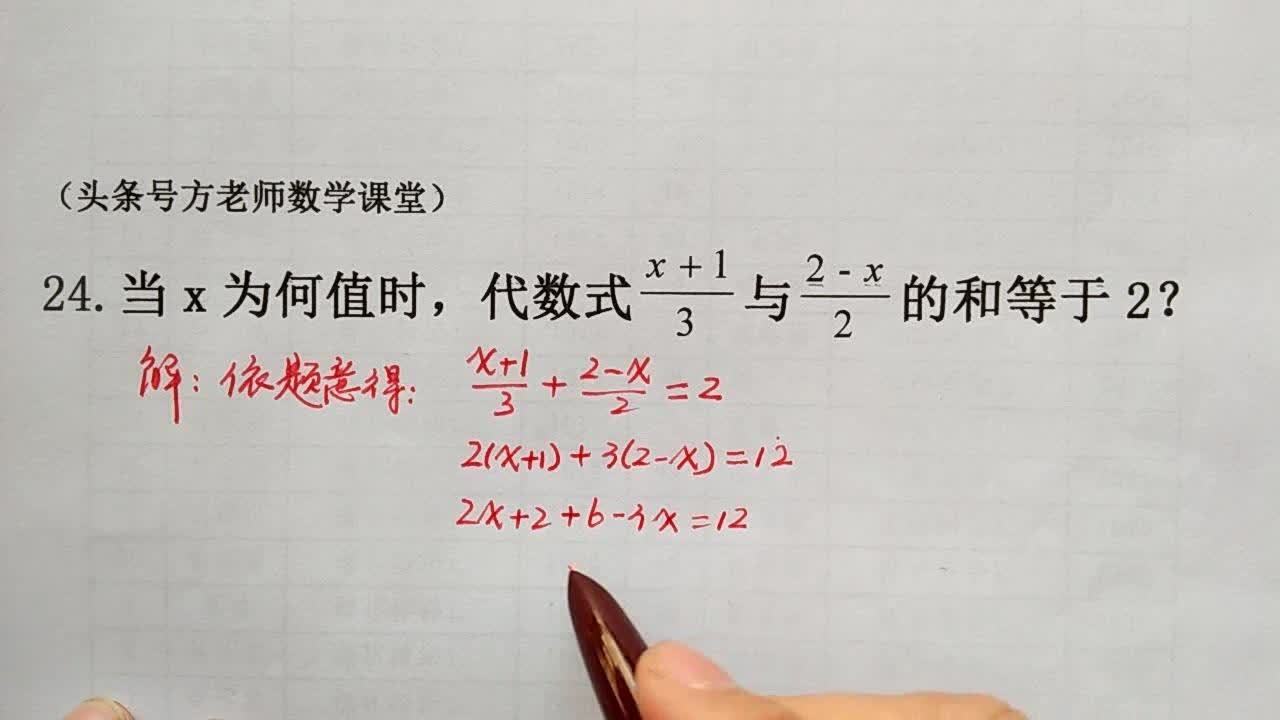 （头条号方老师数学课堂）
24. 当 x 为何值时，代数式 (x + 1)/3 与 (2 - x)/2 的和等于 2？
解：依题意得： (x+1)/3 + (2-x)/2 = 2
2(x+1)+3(2-x)=12
2x+2+6-3x=12